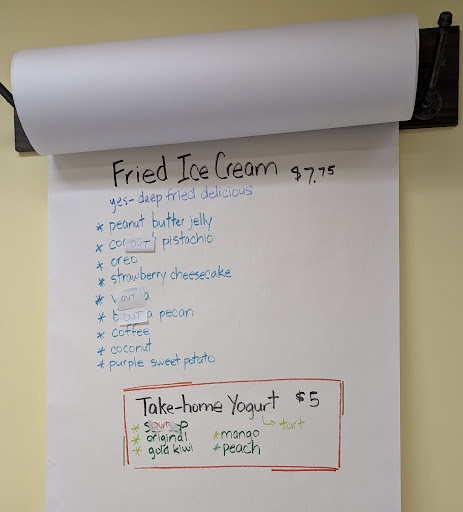 Fried Ice Cream $7.75
yes- deep fried delicious
* peanut butter jelly
* OUT pistachio
* oreo
* strawberry cheesecake
* OUT
* OUT pecan
* coffee
* coconut
* purple sweet potato
Take-home Yogurt $5
↳ tart
* OUT
* original * mango
* gold kiwi * peach